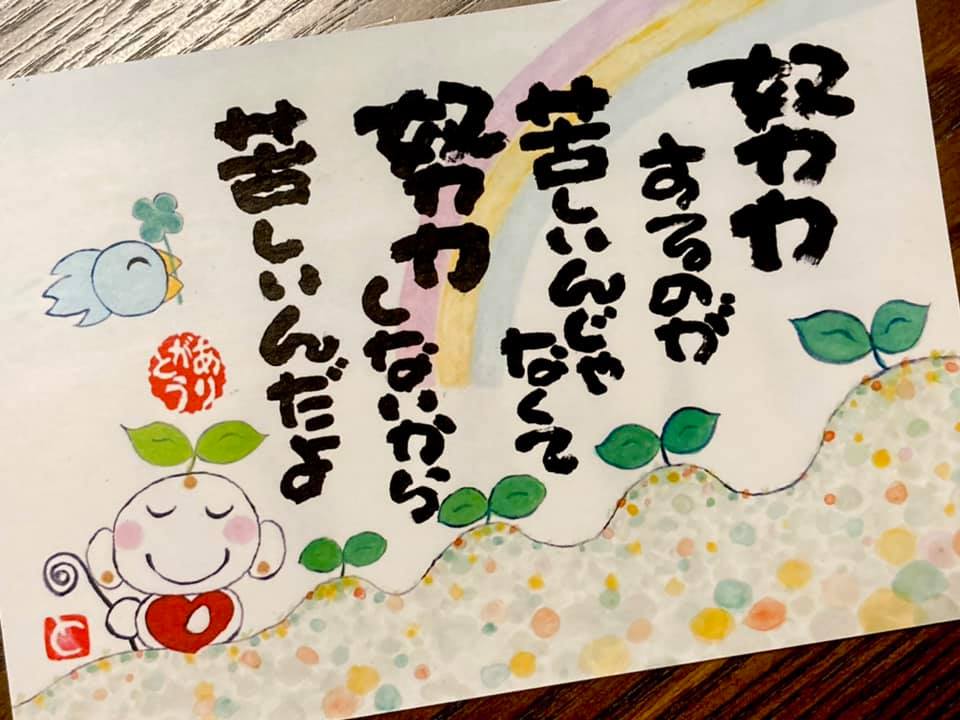 努力
するのが
苦しいんじゃ
なくて
努力
しないから
苦しいんだよ
ありがとう
と